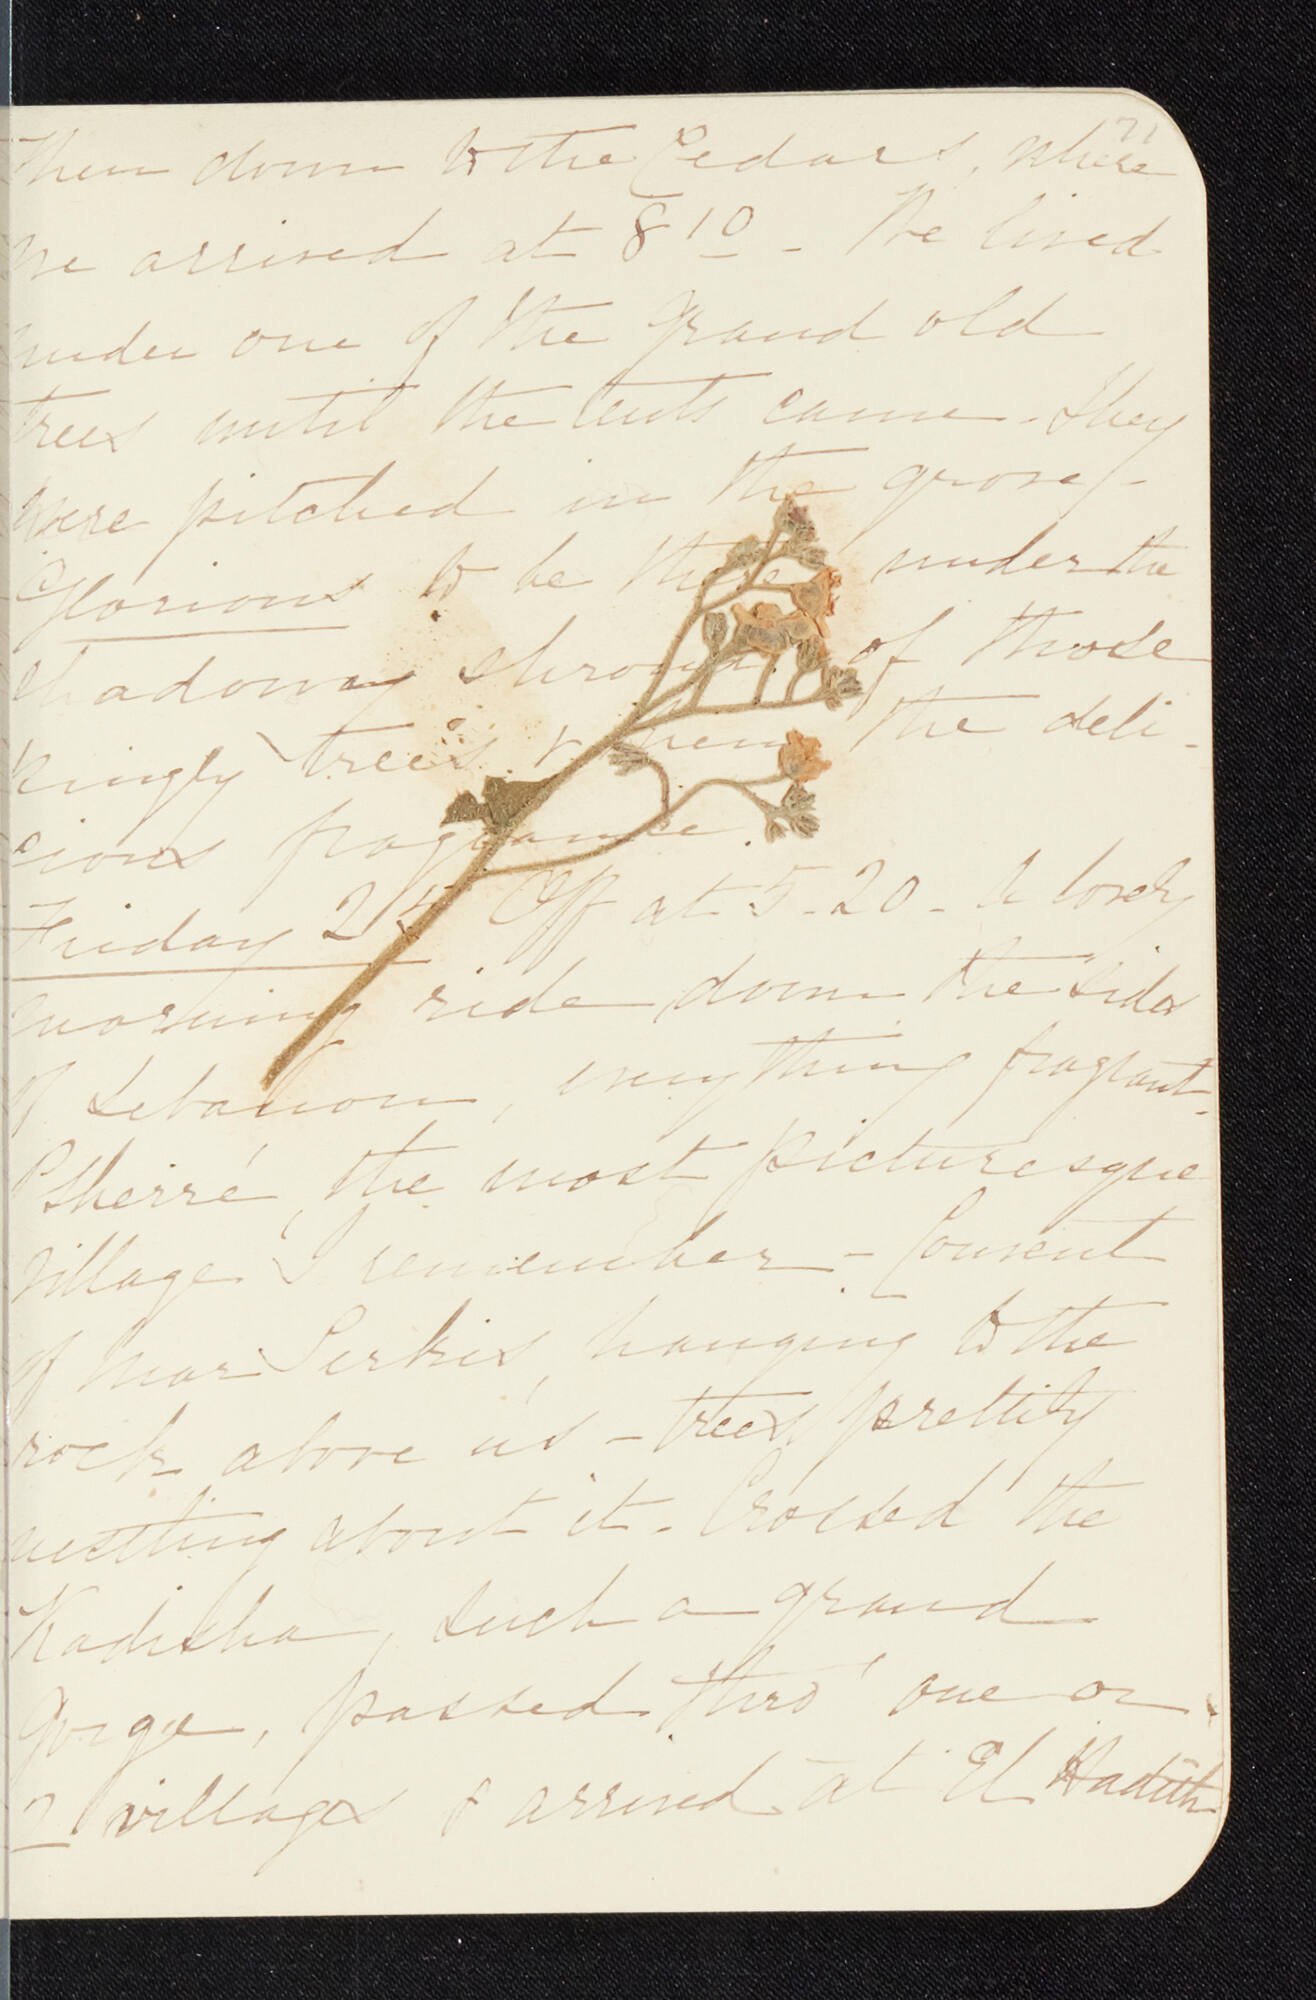 71
Then down to the Cedars, where
we arrived at 8 10 - We lived
under one of the grand old
trees until the tents came - They
were pitched in the grove -
Glorious to be there under the
shadowy of those
kingly trees, & the deli-
cious fragrance.
Friday 24 Off at 5-20 - A lovely
morning ride down the sides
of Lebanon, everything fragrant -
B'sherré, the most picturesque
village I remember - Convent
of Mar Serkis, hanging to the
rock above us - trees prettily
nestling about it - Crossed the
Kadisha, such a grand
Gorge, passed thro' one or
2 villages & arrived at El Hadith